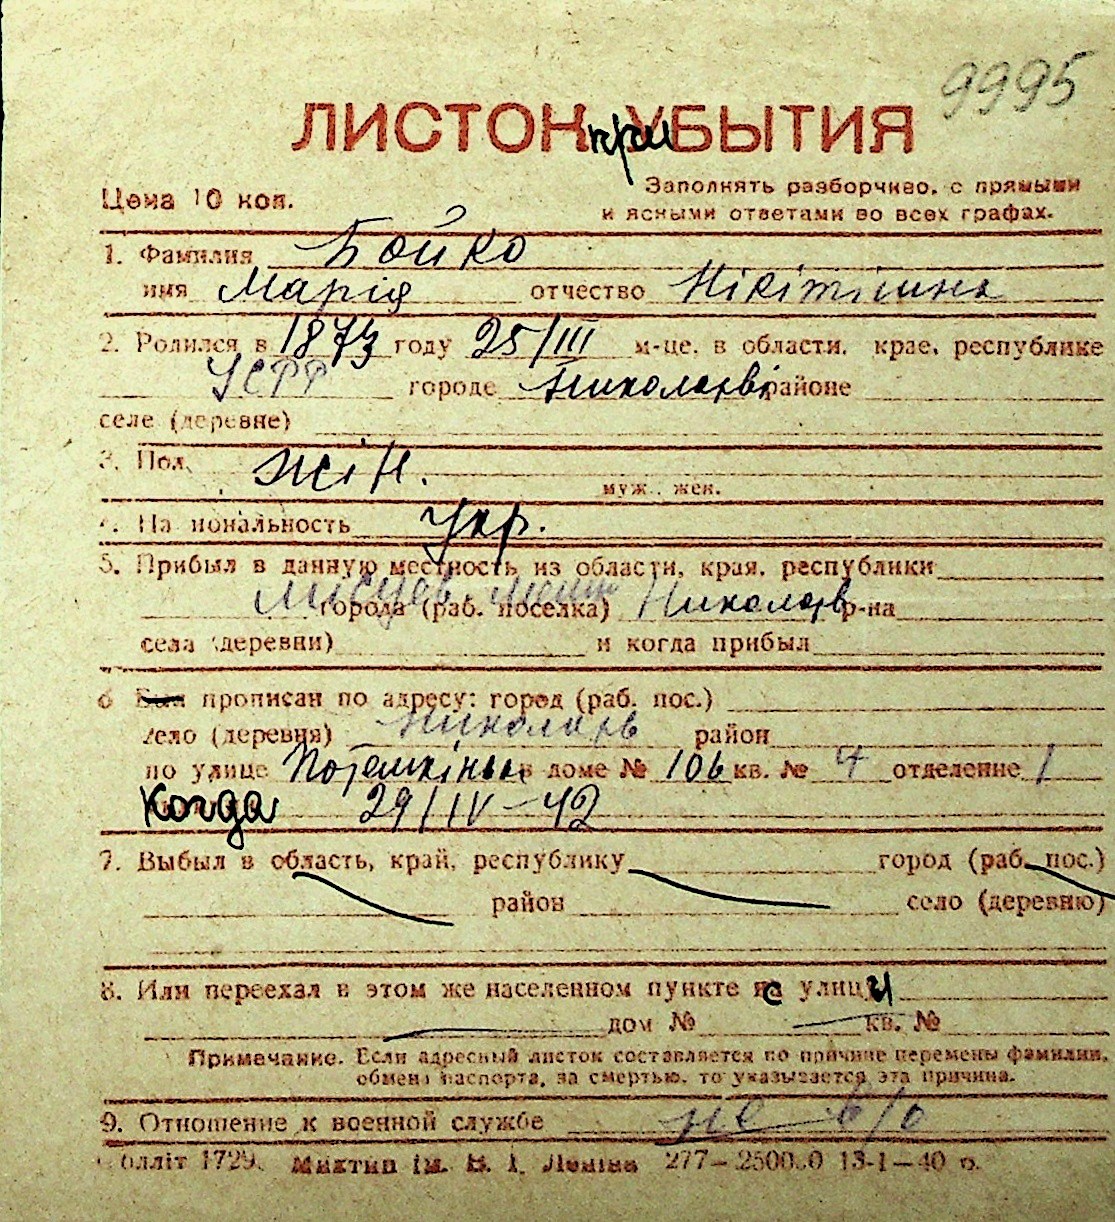 9995
ЛИСТОК приУБЫТИЯ
Цена 10 коп.
Заполнять разборчиво, с прямыми
и ясными ответами во всех графах.
1. Фамилия Бойко
имя Марія отчество Нікітішна
2. Родился в 1873 году 25/III м-це, в области, крае, республике
УСРР городе Николаєві районе
селе (деревне)
3. Пол жін.
муж., жен.
4. Национальность Укр.
5. Прибыл в данную местность из области, края, республики
Місцев. города (раб. поселка) Николаєв р-на
села (деревни) и когда прибыл
6 Был прописан по адресу: город (раб. пос.)
село (деревня) Николаєв район
по улице Потемкінськ в доме № 106 кв. № 4 отделение 1
Когда 29/IV-42
7. Выбыл в область, край, республику город (раб. пос.)
район село (деревню)
8. Или переехал в этом же населенном пункте с улицы
дом № кв. №
Примечание. Если адресный листок составляется по причине перемены фамилии,
обмена паспорта, за смертью, то указывается эта причина.
9. Отношение к военной службе не в/о
Облліт 1729. Миктип ім. В. І. Леніна 277—25000 13-1—40 р.